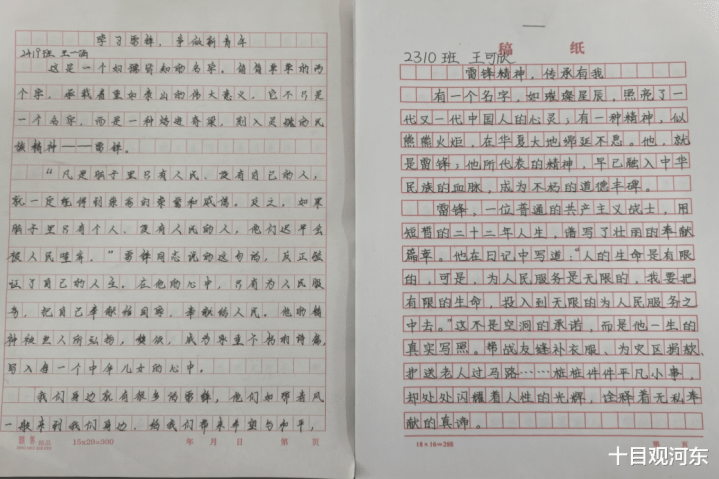 学习雷锋，争做新青年
2419班 王一涵
这是一个如雷贯知的名字，简简单单的两
个字，承载着重如泰山的伟大意义，它不只是
一个名字，而是一种铸造脊梁，刻入灵魂的民
族精神——雷锋。
“凡是脑子里只有人民、没有自己的人，
就一定能得到崇高的荣誉和威信。反之，如果
脑子里只有个人、没有人民的人，他们迟早会
被人民唾弃。”雷锋同志说的这句话，反正验
证了自己的人生。在他的心中，只有为人民服
务，把自己奉献给国家，奉献给人民。他的精
神被 人所弘扬，赞颂，成为
写入每一个中华儿女的心中。
我们身边就有很多的雷锋，他们如春风
一般来到我们身边，给我们带来希望与和平，
15x20=300 年 月 日 第 页
稿 纸
2310班 王可欣
雷锋精神，传承有我
有一个名字，如璀璨星辰，照亮了一
代又一代中国人的心灵；有一种精神，似
熊熊火炬，在华夏大地绵延不息。他，就
是雷锋；他所代表的精神，早已融入中华
民族的血脉，成为不朽的道德丰碑。
雷锋，一位普通的共产主义战士，用
短暂的二十二年人生，谱写了壮丽的奉献
篇章。他在日记中写道：“人的生命是有限
的，可是，为人民服务是无限的，我要把
有限的生命，投入到无限的为人民服务之
中去。”这不是空洞的承诺，而是他一生的
真实写照。帮战友缝补衣服、为灾区捐款、
护送老人过马路……桩桩件件平凡小事，
却处处闪耀着人性的光辉，诠释着无私奉
献的真谛。
18×16=288 第 页
十目观河东